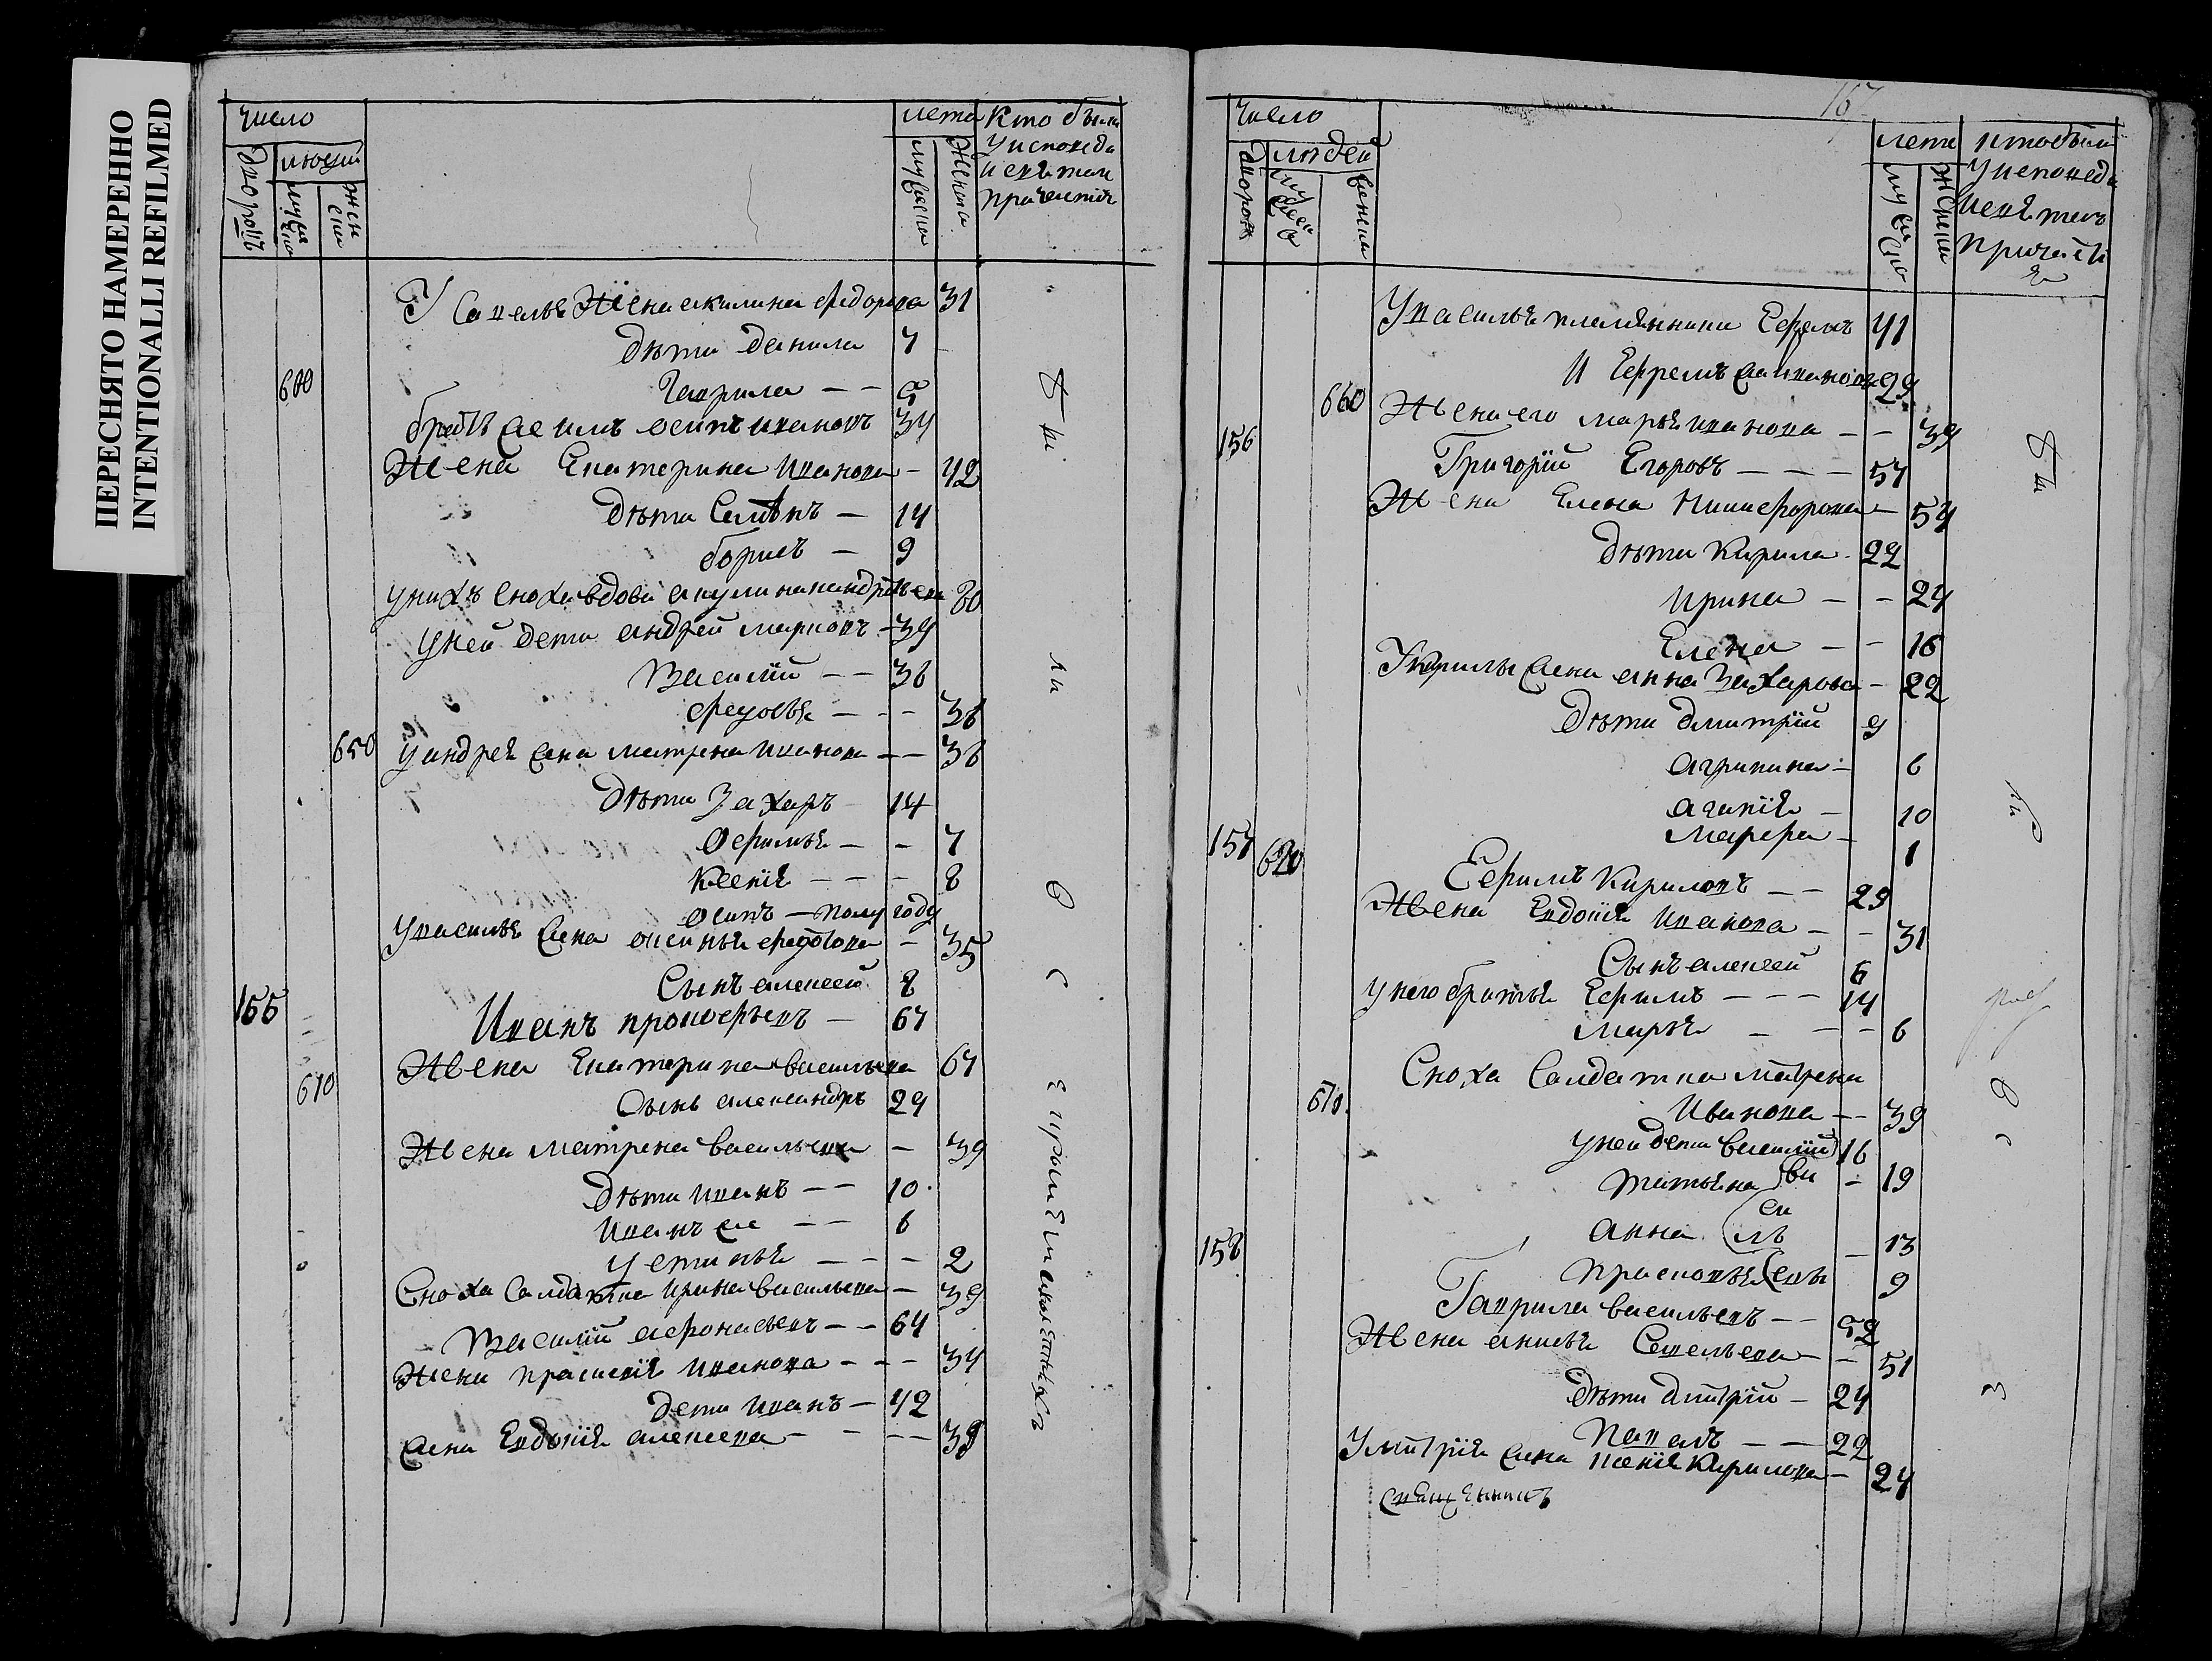 ПЕРЕСНЯТО НАМЕРЕННО
INTENTIONALLI REFILMED
число
дворовъ
людей
мужеска
женска
лета
мужеска
женска
Кто были
у исповеди
и святаго
причастия
У Савелья жена акилина федорова 31
дѣти данила 7
600 Гаврила — — 5
братъ осипъ ивановъ 34
жена Екатерина иванова — 42
дѣти Семѣнъ — 14
борисъ — 9
у нихъ сноха вдова акулина кандратьева 80
у ней дети андрей марковъ — 39
Василий — — 36
федосья — — — 36
650 у андрея жена матрена иванова — — 36
дѣти Захаръ 14
офимья — — 7
Ксения — — — 8
осипъ — полу году
У василья жена аксинья федотова — 35
Сынъ алексей 8
155 Иванъ прокофьевъ — 67
жена Екатерина васильева 67
610 Сынъ александръ 29
жена матрена васильева — 39
дѣти иванъ — — 10
иванъ же — — 6
устинья — — — 2
Сноха Салдатка ирина васильева — 39
Василий афонасьевъ — — 64
жена прасковия иванова — — — 34
дети иванъ — 42
жена Евдокия алексеева — — — — 39
167
число
дворовъ
людей
мужеска
женска
лета
мужеска
женска
кто были
у исповеди
и святаго
причастия
У василья племянники Ефремъ 41
и Ефремъ же ивановъ 29
660 Жена его марья иванова — — 39
156 Григорий Егоровъ — — — 57
Жена Елена Никифорова — 54
дѣти Кирила 22
ирина — — 24
Елена — — 16
У кирилы жена анна Захарова — 22
дѣти дмитрий 9
агрипина — 6
агапия — 10
марфа — 1
157 620 Ефимъ Кириловъ — — 29
Жена Евдокия иванова — — 31
Сынъ алексей 6
у него братья Ефимъ — — — 14
марья — — — 6
Сноха Салдатка матрена
670 иванова — — 39
у ней дети василий 16
татьяна — 19
анна — 13
прасковья 9
158 Гаврила васильевъ — — 52
Жена анисья Савельева — — 51
дѣти дмитрий — 24
Павелъ — — 22
У митрия жена ксения Кирилова — 24
священникъ